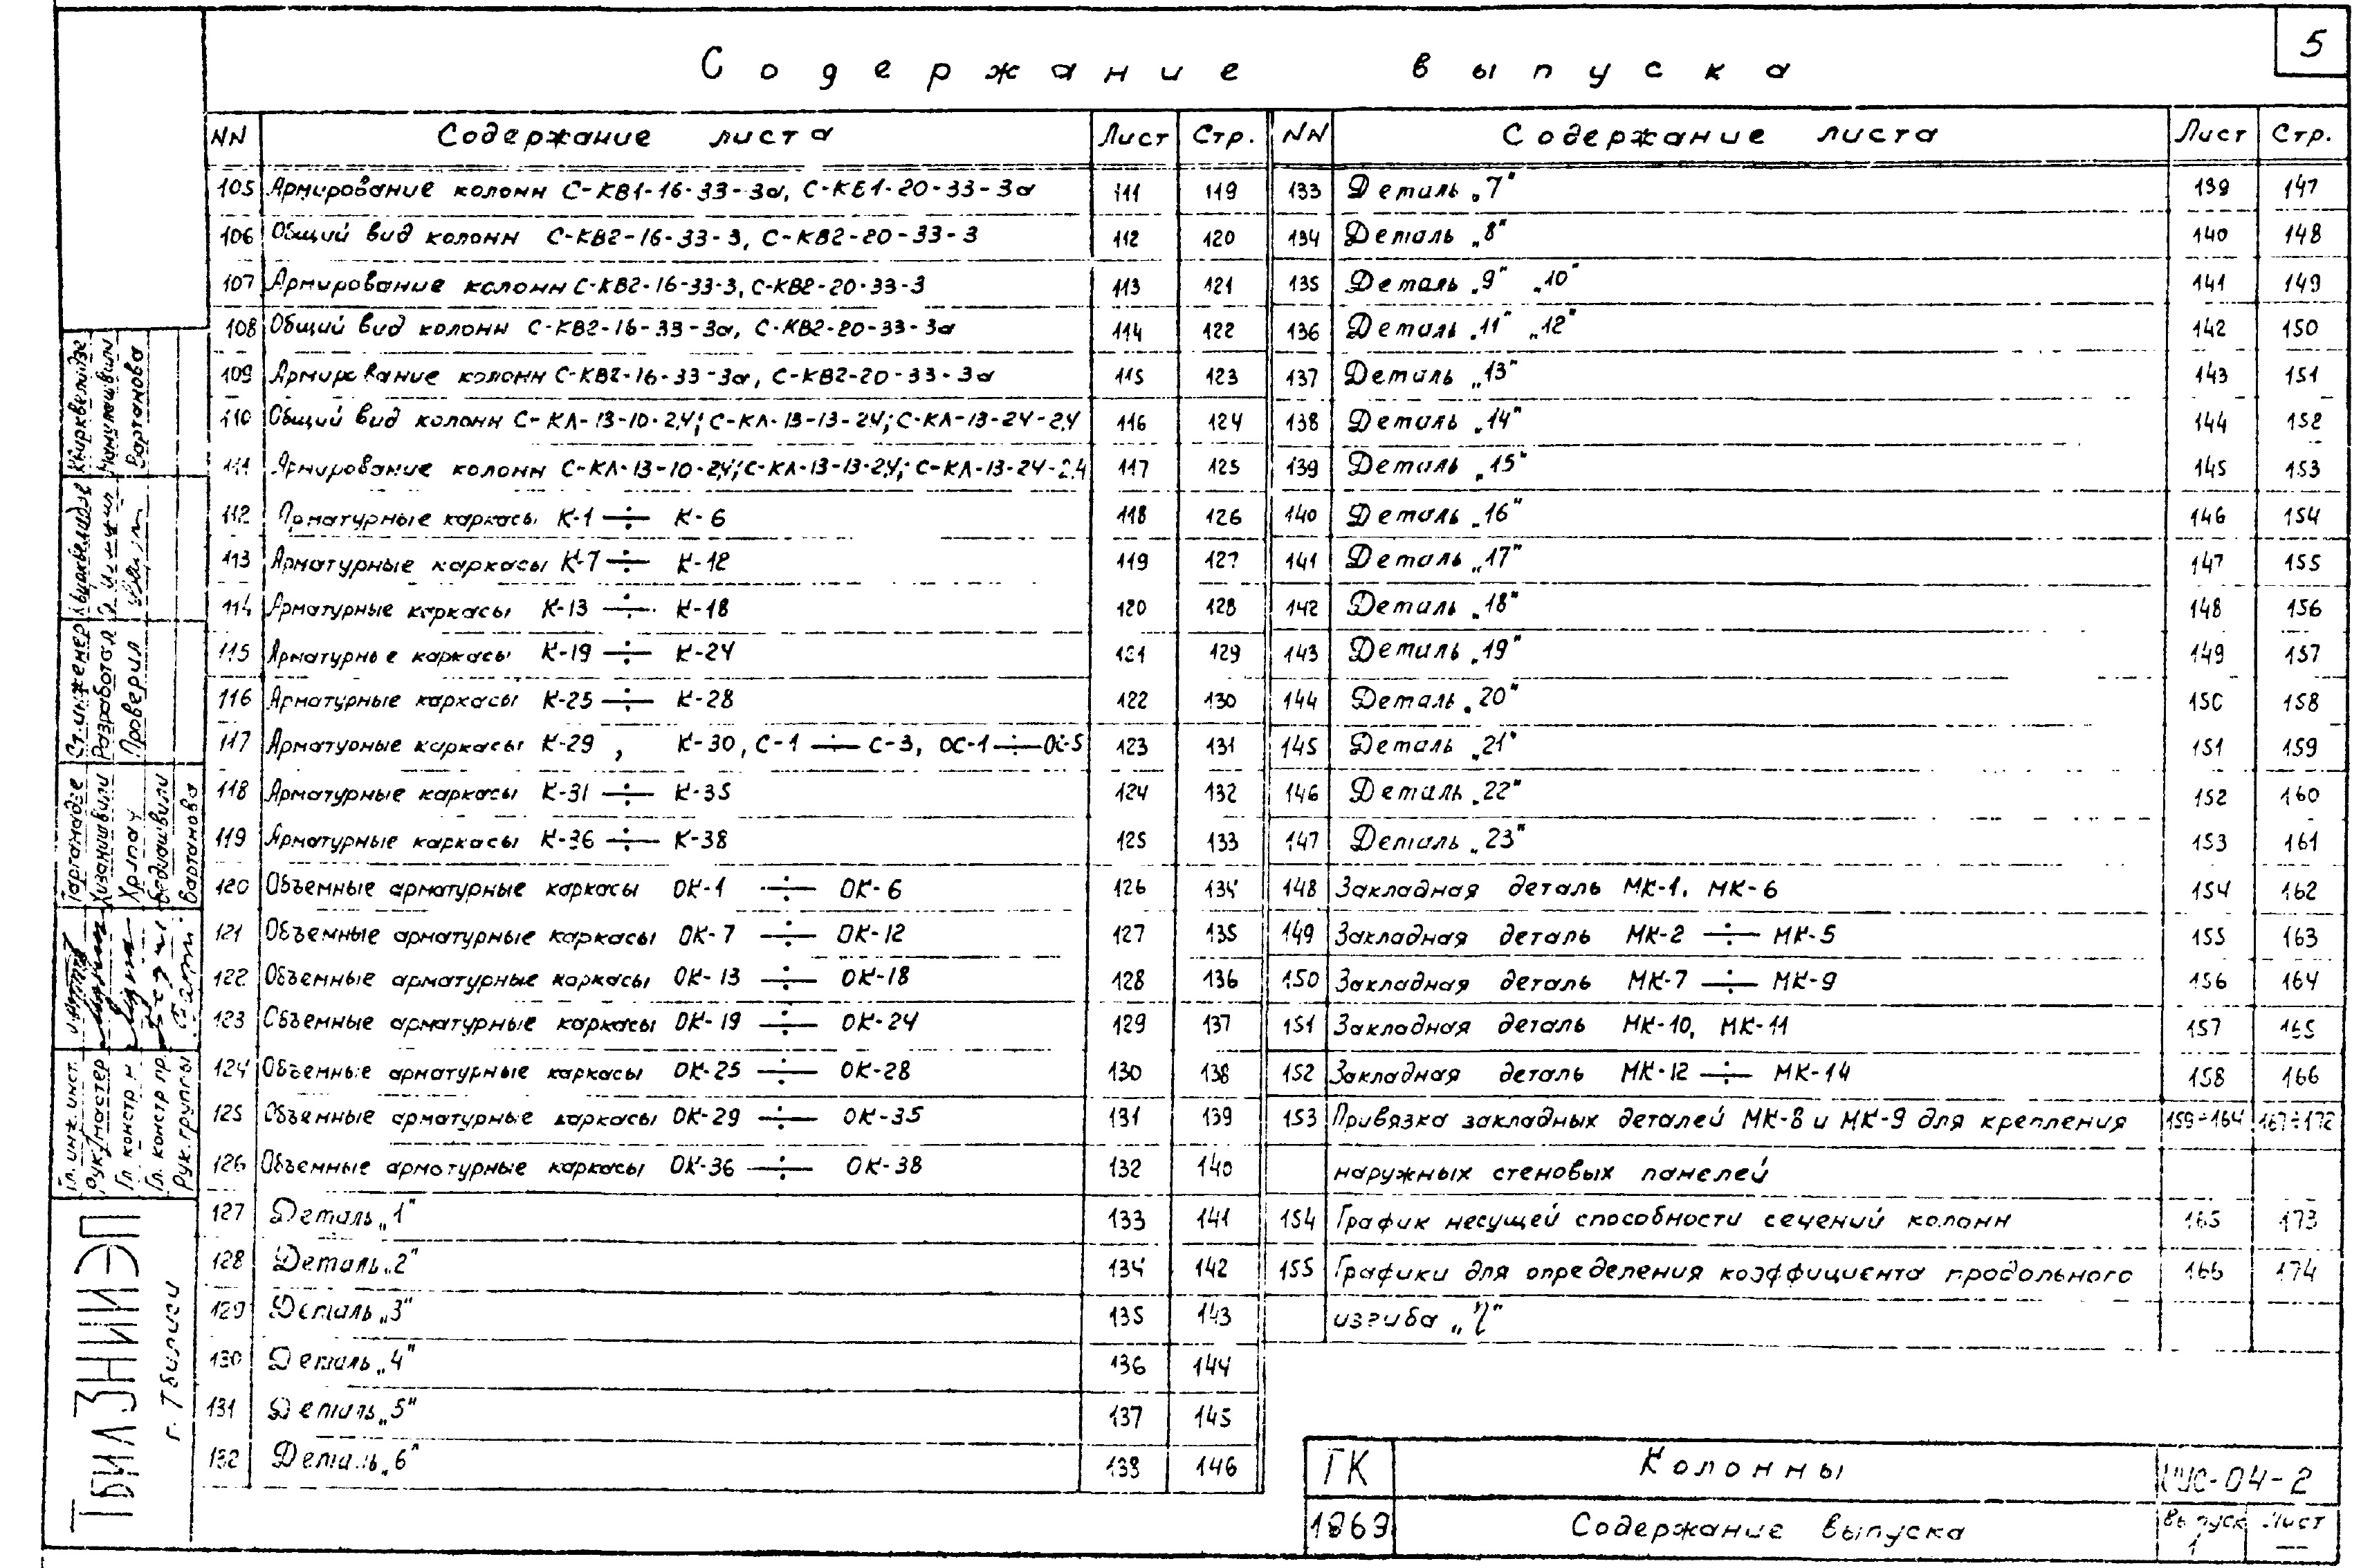 5
Содержание выпуска
NN Содержание листа Лист Стр.
105 Армирование колонн С-КВ1-16-33-3а, С-КБ1-20-33-3а 111 119
106 Общий вид колонн С-КВ2-16-33-3, С-КВ2-20-33-3 112 120
107 Армирование колонн С-КВ2-16-33-3, С-КВ2-20-33-3 113 121
108 Общий вид колонн С-КВ2-16-33-3а, С-КВ2-20-33-3а 114 122
109 Армирование колонн С-КВ2-16-33-3а, С-КВ2-20-33-3а 115 123
110 Общий вид колонн С-КЛ-13-10-2,4; С-КЛ-13-13-24; С-КЛ-13-24-2,4 116 124
111 Армирование колонн С-КЛ-13-10-2,4; С-КЛ-13-13-2,4; С-КЛ-13-24-2.4 117 125
112 Арматурные каркасы К-1 ÷ К-6 118 126
113 Арматурные каркасы К-7 ÷ К-12 119 127
114 Арматурные каркасы К-13 ÷ К-18 120 128
115 Арматурные каркасы К-19 ÷ К-24 121 129
116 Арматурные каркасы К-25 ÷ К-28 122 130
117 Арматурные каркасы К-29 , К-30, С-1 ÷ С-3, ОС-1 ÷ ОС-5 123 131
118 Арматурные каркасы К-31 ÷ К-35 124 132
119 Арматурные каркасы К-36 ÷ К-38 125 133
120 Объемные арматурные каркасы ОК-1 ÷ ОК-6 126 134
121 Объемные арматурные каркасы ОК-7 ÷ ОК-12 127 135
122 Объемные арматурные каркасы ОК-13 ÷ ОК-18 128 136
123 Объемные арматурные каркасы ОК-19 ÷ ОК-24 129 137
124 Объемные арматурные каркасы ОК-25 ÷ ОК-28 130 138
125 Объемные арматурные каркасы ОК-29 ÷ ОК-35 131 139
126 Объемные арматурные каркасы ОК-36 ÷ ОК-38 132 140
127 Деталь „1" 133 141
128 Деталь „2" 134 142
129 Деталь „3" 135 143
130 Деталь „4" 136 144
131 Деталь „5" 137 145
132 Деталь „6" 138 146
NN Содержание листа Лист Стр.
133 Деталь „7" 139 147
134 Деталь „8" 140 148
135 Деталь „9" „10" 141 149
136 Деталь „11" „12" 142 150
137 Деталь „13" 143 151
138 Деталь „14" 144 152
139 Деталь „15" 145 153
140 Деталь „16" 146 154
141 Деталь „17" 147 155
142 Деталь „18" 148 156
143 Деталь „19" 149 157
144 Деталь „20" 150 158
145 Деталь „21" 151 159
146 Деталь „22" 152 160
147 Деталь „23" 153 161
148 Закладная деталь МК-1, МК-6 154 162
149 Закладная деталь МК-2 ÷ МК-5 155 163
150 Закладная деталь МК-7 ÷ МК-9 156 164
151 Закладная деталь МК-10, МК-11 157 165
152 Закладная деталь МК-12 ÷ МК-14 158 166
153 Привязка закладных деталей МК-8 и МК-9 для крепления 159÷164 167÷172
наружных стеновых панелей
154 График несущей способности сечений колонн 165 173
155 Графики для определения коэффициента продольного 166 174
изгиба „η"
ТК Колонны ИИС-04-2
1969 Содержание выпуска Выпуск 1 Лист —
ТбилЗНИИЭП
г. Тбилиси
Гл. инж. инст. Таргамадзе
Рук. мастер Хизанишвили
Гл. констр. м.
Гл. констр пр. Бедиашвили
Рук. группы Вартанова
Ст. инженер Кьирквелидзе
Разработал
Проверил Вартанова